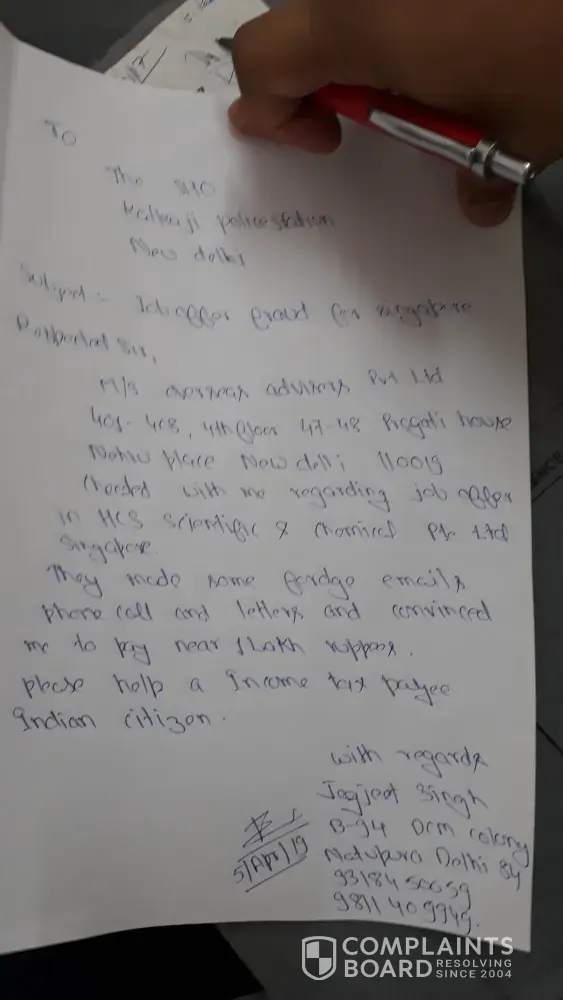 To
The SHO
Kalkaji police station
New delhi
Subject:- Job offer fraud for singapore
Sir,
M/s overseas advisers Pvt Ltd
4th floor 47-48 Pragati house
Nehru place New delhi 110019
Cheeted with me regarding job offer
in HCS Scientific & Chemical Pte Ltd
Singapore.
They made some emails
phone call and letters and convinced
me to pay near 1 Lakh
please help a Income tax payee
Indian citizen.
with regards
Jagjeet Singh
B-94 DCM colony
Delhi 84
5/Apr/19
COMPLAINTS
BOARD RESOLVING
SINCE 2004